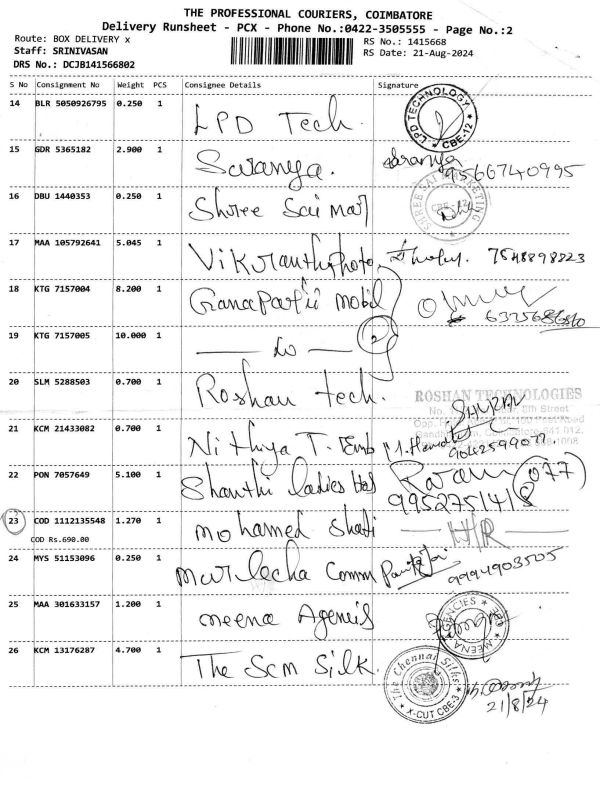 THE PROFESSIONAL COURIERS, COIMBATORE
Delivery Runsheet - PCX - Phone No.:0422-3505555 - Page No.:2
Route: BOX DELIVERY x
RS No.: 1415668
Staff: SRINIVASAN
RS Date: 21-Aug-2024
DRS No.: DCJB141566802
S No Consignment No Weight PCS Consignee Details Signature
14 BLR 5050926795 0.250 1 LPD Tech. LPD TECHNOLOGY CBE-12
15 GDR 5365182 2.900 1 Saranya. Saranya 9566740995
16 DBU 1440353 0.250 1 Shree Sai Mar SHREE SAI MARKETING
17 MAA 105792641 5.045 1 Vikranth Photo 7548898823
18 KTG 7157004 8.200 1 Ganapathi mobil
19 KTG 7157005 10.000 1 — Do — 2
20 SLM 5288503 0.700 1 Roshan tech. ROSHAN TECHNOLOGIES
8th Street
100 Feet Road
641 012.
21 KCM 21433082 0.700 1 Nithiya T. Emb 9042599077
22 PON 7057649 5.100 1 Shanthi ladies Hos (077)
23 COD 1112135548 1.270 1 mohamed Shafi — H/R —
COD Rs.690.00
24 MYS 51153096 0.250 1 Marlecha Comm 9994903505
25 MAA 301633157 1.200 1 meena Agencis MEENA AGENCIES CBE
26 KCM 13176287 4.700 1 The Scm Silk. The Chennai Silks X-CUT CBE-3
21/8/24